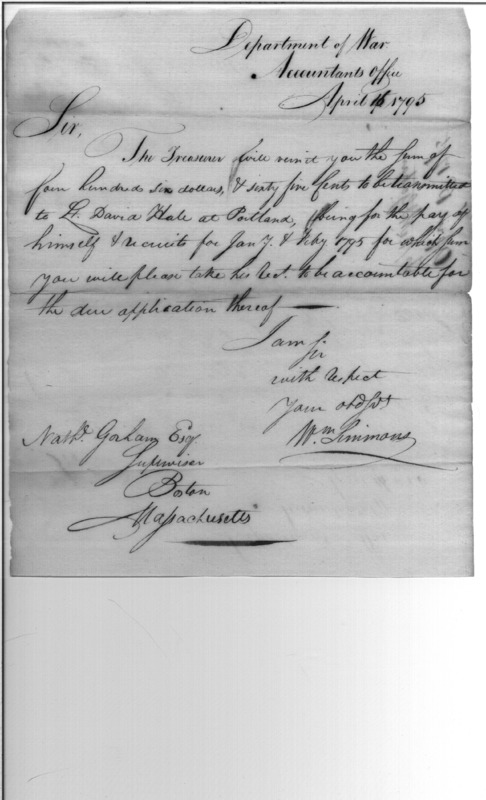 Department of War
Accountants Office
April 16 1795
Sir,
The Treasurer will remit you the sum of
four hundred six dollars, & sixty five Cents to be transmitted
to Lt. David Hale at Portland, being for the pay of
himself & recruits for Jany. & Feby 1795 for which sum
you will please take his rect. to be accountable for
the due application thereof —
I am Sir
with respect
Your obd Svt
Wm Simmons
Nathl. Gorham Esqr
Supervisor
Boston
Massachusetts